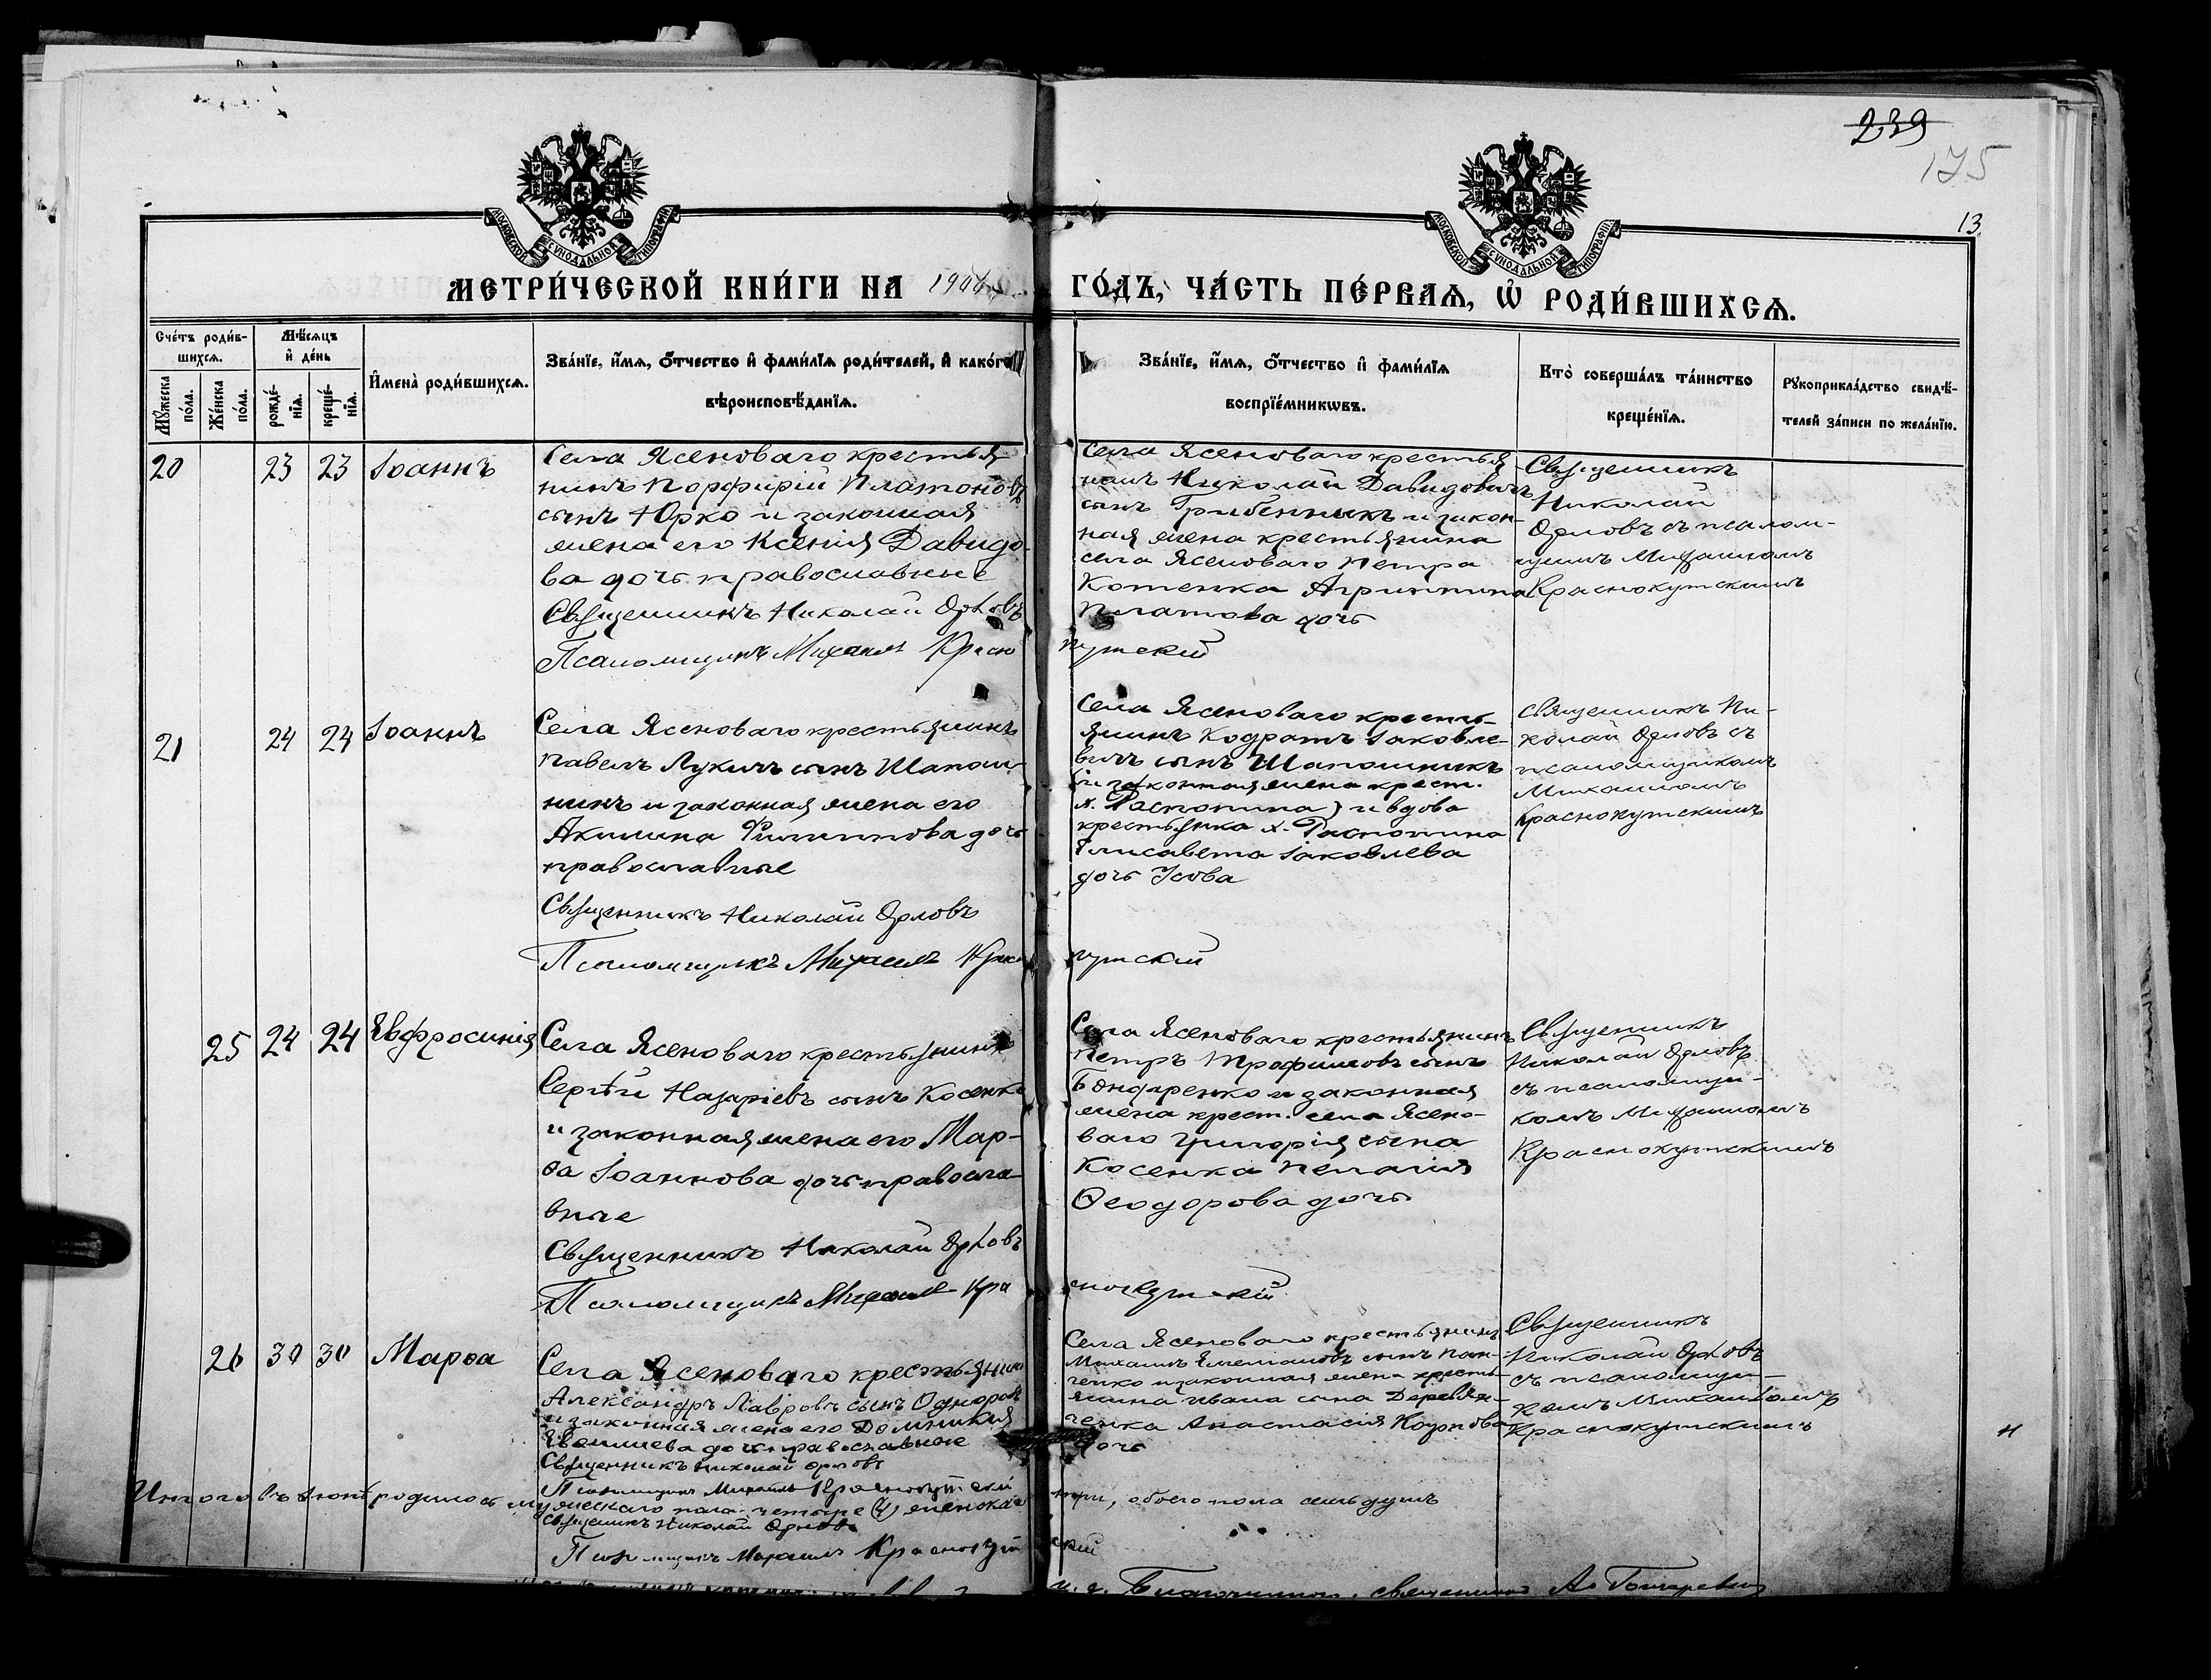 239
175
13
МОСКОВСКОЙ СѴНОДАЛЬНОЙ ТИПОГРАФІИ
МОСКОВСКОЙ СѴНОДАЛЬНОЙ ТИПОГРАФІИ
МЕТРИ́ЧЕСКОЙ КНИ́ГИ НА 190
ГО́ДЪ, ЧА́СТЬ ПЕ́РВАѦ, Ѡ҆ РОДИ́ВШИХСѦ.
Сче́тъ роди́в-
шихсѧ.
Мꙋ́жеска по́ла.
Же́нска по́ла.
Мѣ́сѧцъ
и҆ де́нь
рожде́-
нїѧ.
креще́-
нїѧ.
И҆мена̀ роди́вшихсѧ.
Зва́нїе, и҆́мѧ, ѻ҆́тчество и҆ фами́лїѧ роди́телей, и҆ како́гѡ
вѣроисповѣ́данїѧ.
Зва́нїе, и҆́мѧ, ѻ҆́тчество и҆ фами́лїѧ
воспрїе́мникѡвъ.
Кто̀ соверша́лъ та́инство
креще́нїѧ.
Рꙋкоприкла́дство свидѣ́-
телей за́писи по жела́нїю.
20
23
23
Іоаннъ
Села Ясеноваго крестья-
нинъ Порфирій Платоновъ
сынъ Юрко и законная
жена его Ксенія Давидо-
ва дочь православные
Священникъ Николай Орловъ
Псаломщикъ Михаилъ Красно
Села Ясеноваго крестья-
нинъ Николай Давидовичъ
сынъ Грибенникъ и закон-
ная жена крестьянина
села Ясеноваго Петра
Котенка Агрипина
Платова дочь
кутскій
Священникъ
Николай
Орловъ съ псалом-
щикомъ Михаиломъ
Краснокутскимъ
21
24
24
Іоаннъ
Села Ясеноваго крестьянинъ
Павелъ Лукичъ сынъ Шапош-
никъ и законная жена его
Акилина Филиппова дочь
православные
Священникъ Николай Орловъ
Псаломщикъ Михаилъ Красно
Села Ясеноваго кресть-
янинъ Кодратъ Іаковле-
вичъ сынъ Шапошникъ
(и законная жена крест.
х. Распопина) и вдова
крестьянка х. Распопина
Елисавета Іаковлева
дочь Усова
кутскій
Священникъ Ни-
колай Орловъ съ
псаломщикомъ
Михаиломъ
Краснокутскимъ
25
24
24
Евфросинія
Села Ясеноваго крестьянинъ
Сергѣй Назаріевъ сынъ Косенко
и законная жена его Мар-
ѳа Іоаннова дочь правосла-
вные
Священникъ Николай Орловъ
Псаломщикъ Михаилъ Кра
Села Ясеноваго крестьянинъ
Петръ Трофимовъ сынъ
Бондаренко и законная
жена крест. села Ясено-
ваго Григорія сына
Косенка Пелагія
Ѳеодорова дочь
снокутскій
Священникъ
Николай Орловъ
съ псаломщи-
комъ Михаиломъ
Краснокутскимъ
26
30
30
Марѳа
Села Ясеноваго крестьянинъ
Александръ Лавровъ сынъ
и законная жена его Домникія
дочь православные
Священникъ Николай Орловъ
Псаломщикъ Михаилъ Краснокутскій
Села Ясеноваго крестьянинъ
Михаилъ Емельяновъ сынъ Пан-
ченко и законная жена кресть-
янина Ивана сына Деревян-
ченка Анастасія Карпова
дочь
Священникъ
Николай Орловъ
съ псаломщи-
комъ Михаиломъ
Краснокутскимъ
Итого въ родилось мужескаго пола четыре (4) женскаго
три, обоего пола семь душъ
Священникъ Николай Орловъ
Псаломщикъ Михаилъ Краснокут
скій
и. д. Благочиннаго, священникъ